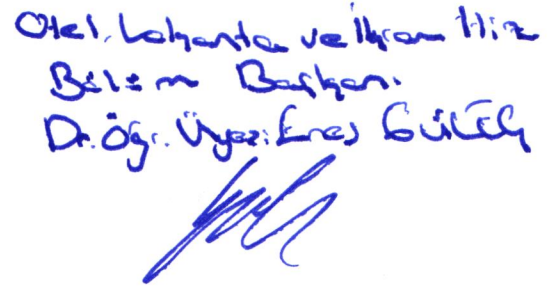 Otel, Lokanta ve İkram Hiz
Bölüm Başkanı
Dr. Öğr. Üyesi Enes